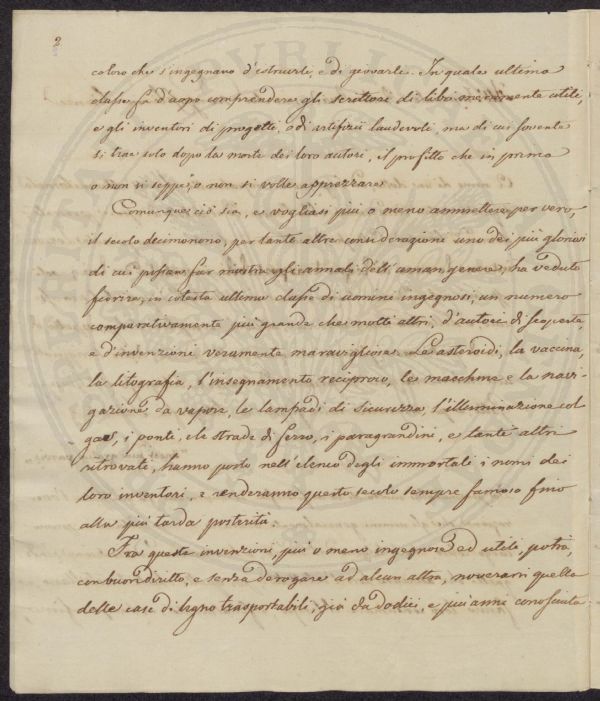 2
coloro che s'ingegnano d'estruirle, e di giovarle. In quale ultima
classe fa d'uopo comprendere gli scrittori di libri meramente utili,
e gli inventori di progetti, o di artifizii laudevoli, ma di cui sovente
si trae solo dopo la morte dei loro autori, il profitto che in prima
o non si seppe, o non si volle apprezzare.
Comunque ciò sia, e vogliasi più o meno ammettere per vero,
il secolo decimonono, per tante altre considerazioni uno dei più gloriosi
di cui possan far mostra gli annali dell'uman genere, ha veduto
fiorire, in cotesta ultima classe di uomini ingegnosi, un numero
comparativamente più grande che molti altri, d'autori di scoperte,
e d'invenzioni veramente maravigliose. Le asteroidi, la vaccina,
la litografia, l'insegnamento reciproco, le macchine e la navi-
gazione da vapore, le lampadi di sicurezza, l'illuminazione col
gas, i ponti, e le strade di ferro, i paragrandini, e tante altri
ritrovati, hanno posto nell'elenco degli immortali i nomi dei
loro inventori, e renderanno questo secolo sempre famoso fino
alla più tarda posterità.
Tra queste invenzioni, più o meno ingegnose ed utili, potrà,
con buon diritto, e senza derogare ad alcun altra, noverarsi quella
delle case di legno trasportabili, già da dodici, e più anni conosciuta